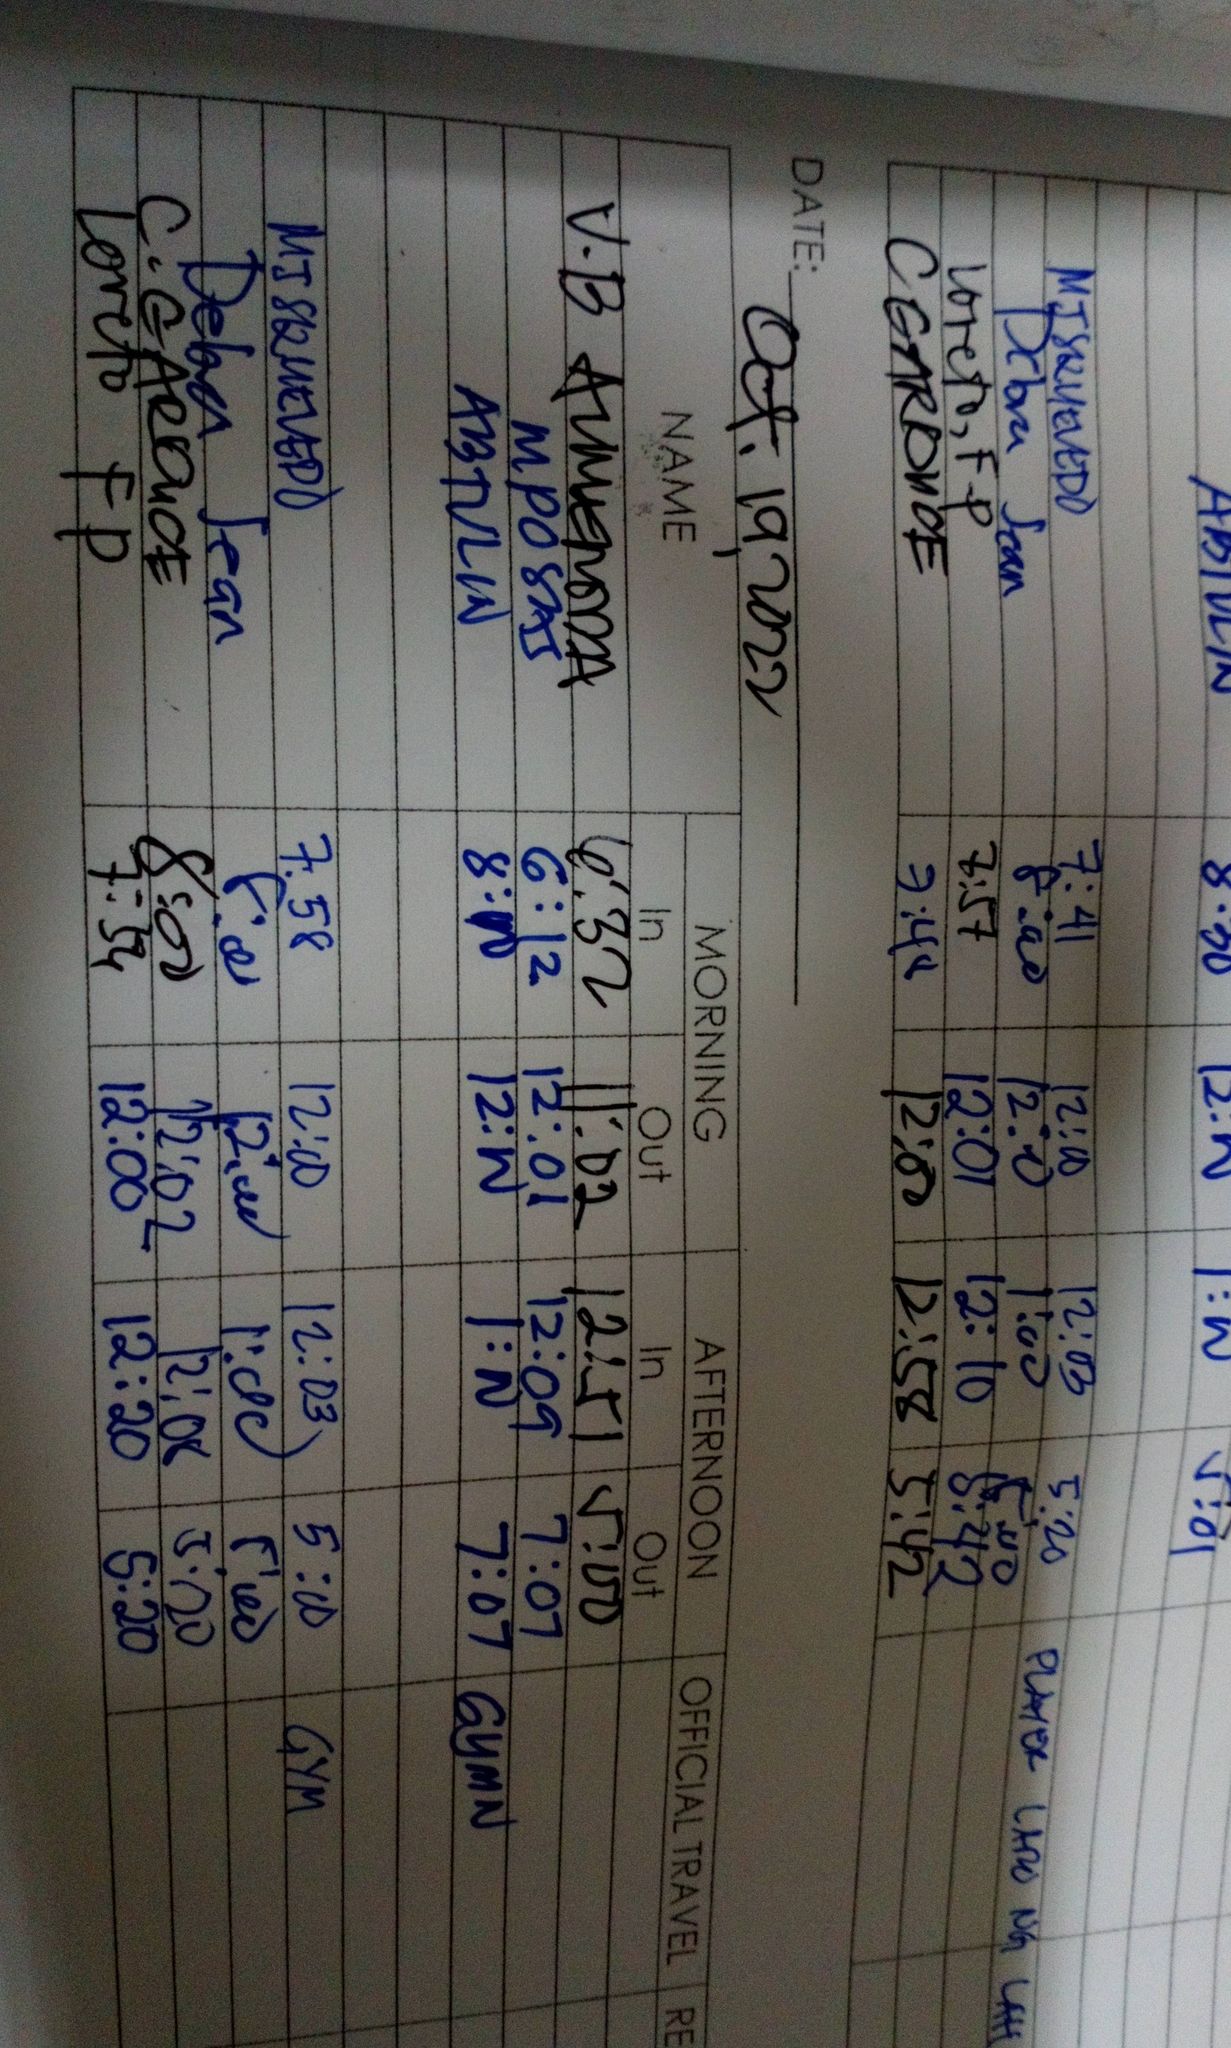 ABTULIN 8:30 12:N 1:N 5:01
7:41 12:00 12:03 5:20
Debra Jean 8:00 12:00 1:00 5:00 PLAYER LARO NG
Loreto, FP 7:57 12:01 12:10 5:42
C GARDUCE 7:44 12:00 12:58 5:42
DATE: Oct. 19, 2022
NAME MORNING AFTERNOON OFFICIAL TRAVEL RE
In Out In Out
V.B 6:32 11:02 12:51 5:00
6:12 12:01 12:09 7:07
ABTULIN 8:N 12:N 1:N 7:07 GYMN
7:58 12:00 12:03 5:10 GYM
Debra Jean 8:00 12:00 1:00 5:00
C. GARDUCE 8:00 12:02 12:08 5:20
Loreto FP 7:54 12:00 12:20 5:20